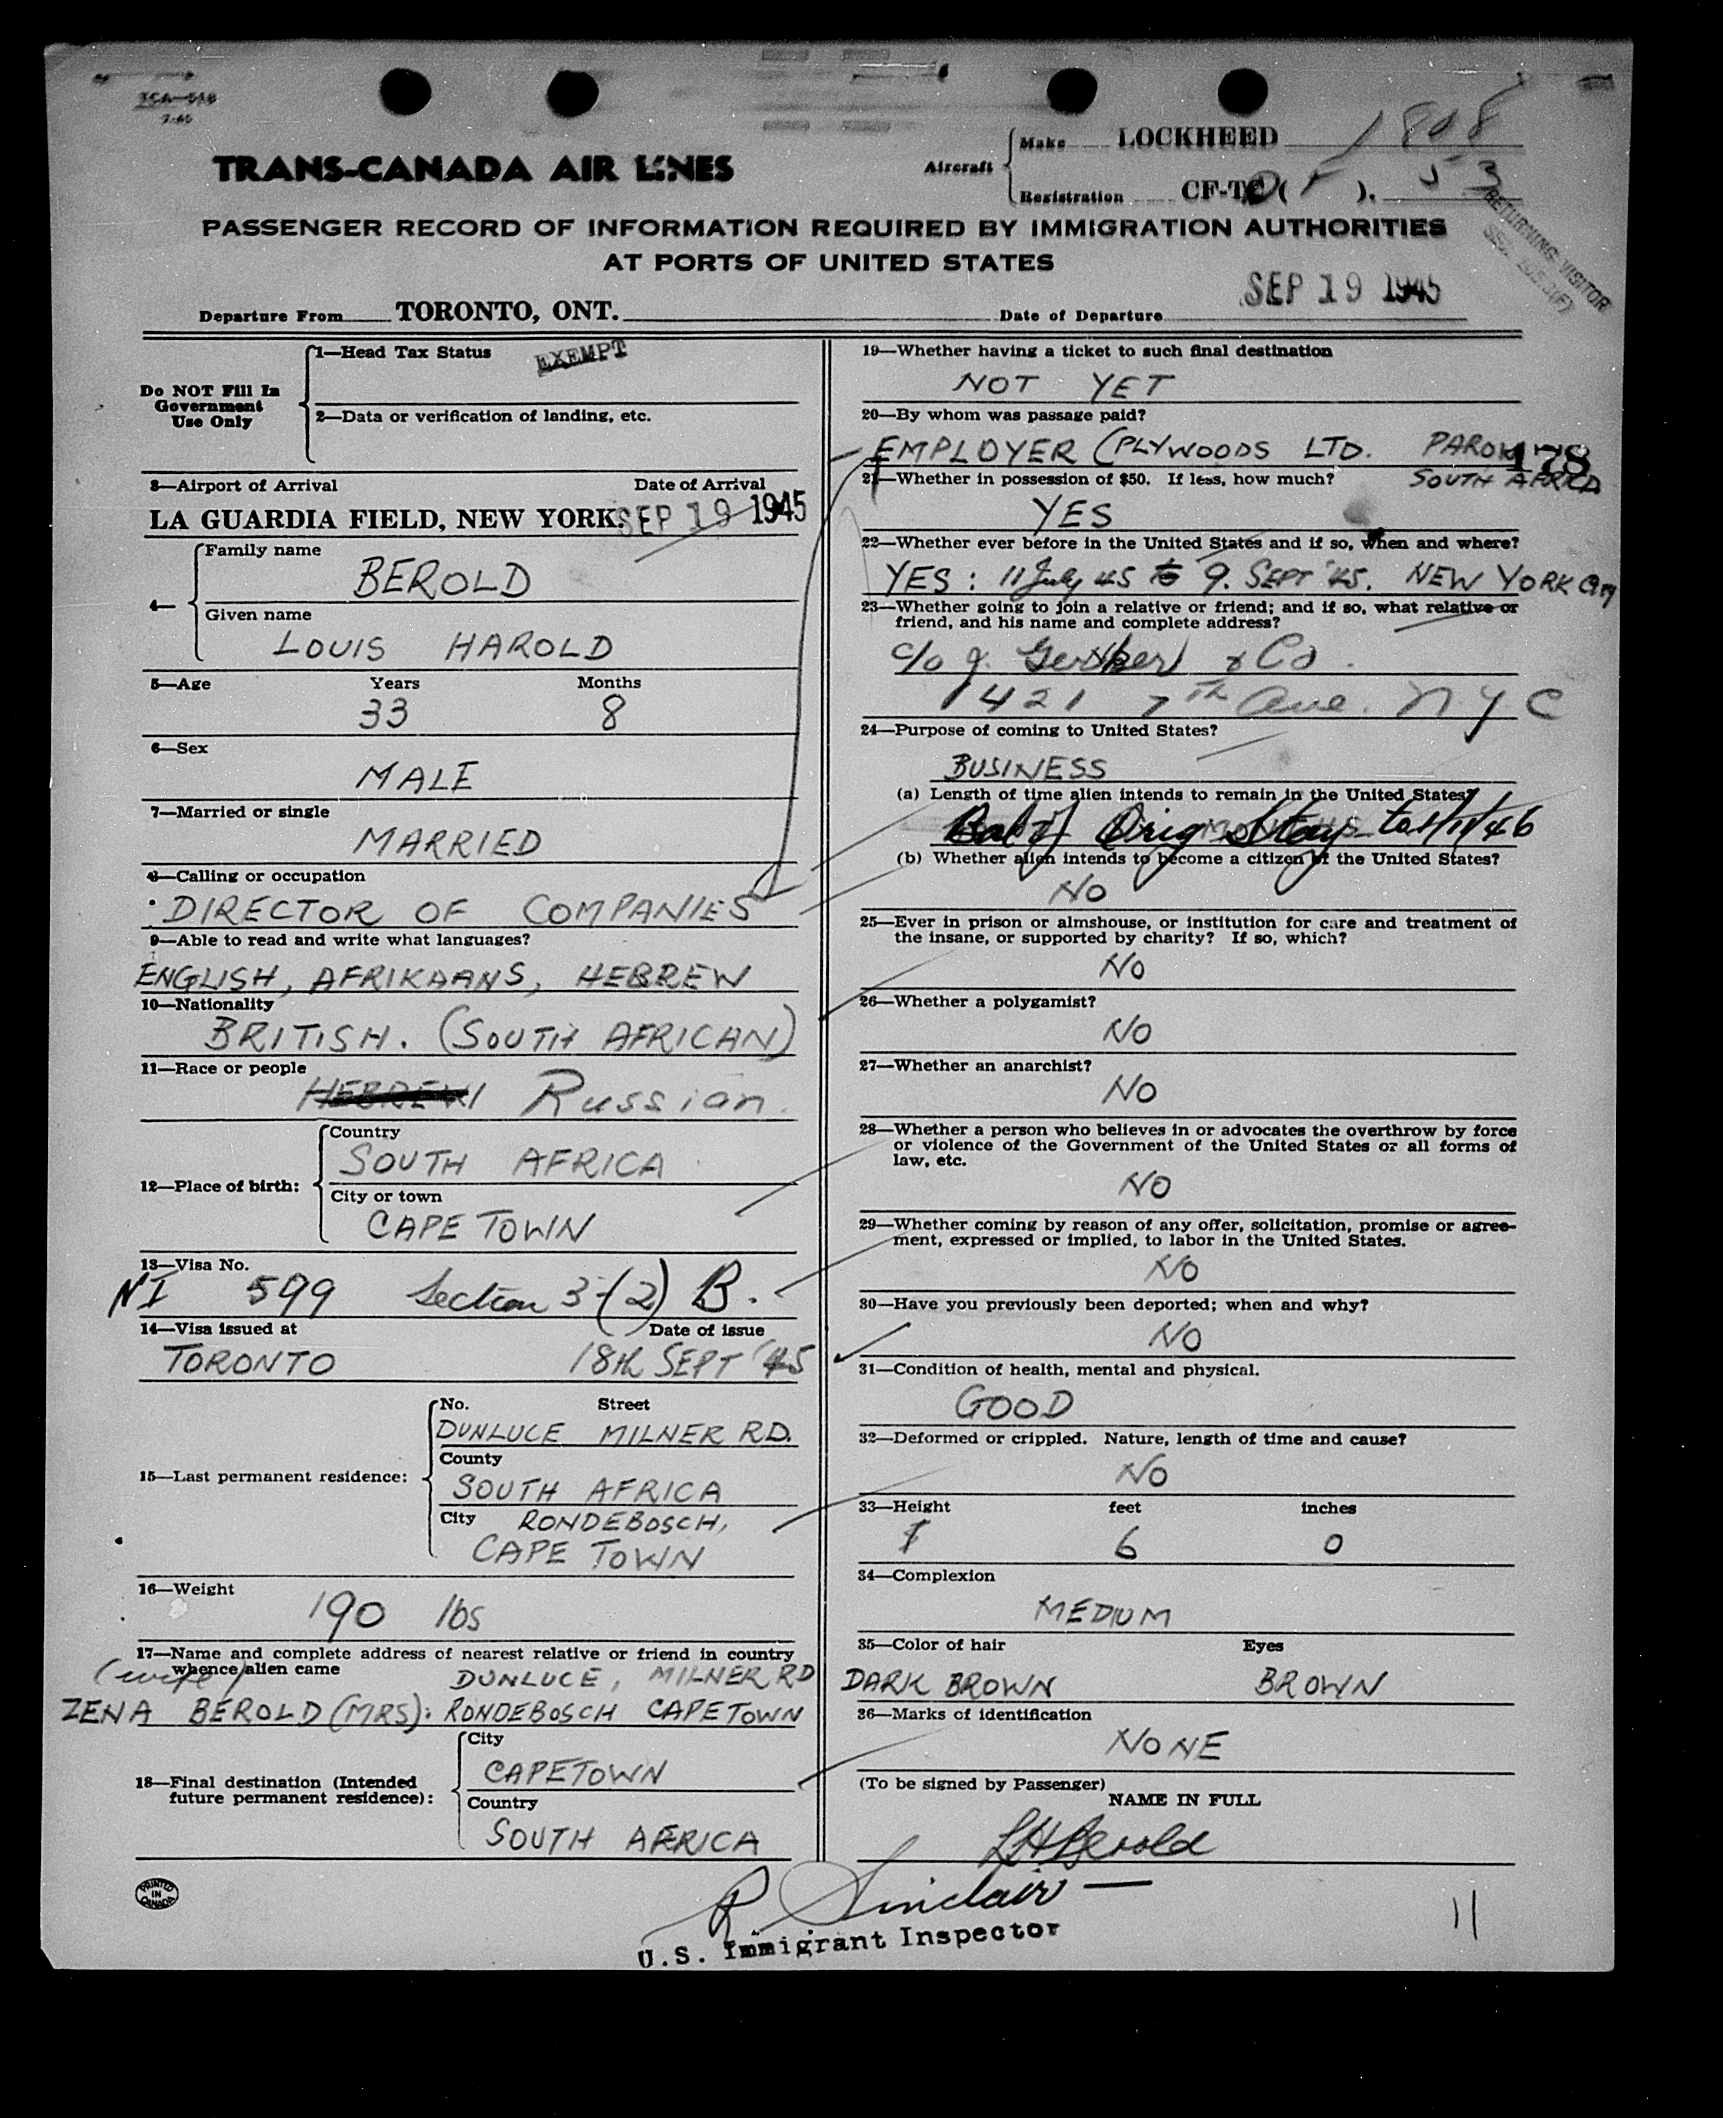 TCA-518
7-45
TRANS-CANADA AIR LINES
Aircraft
Make LOCKHEED 1808
Registration CF-TC ( F ). 53
RETURNING VISITOR
PASSENGER RECORD OF INFORMATION REQUIRED BY IMMIGRATION AUTHORITIES
AT PORTS OF UNITED STATES
Departure From TORONTO, ONT.
Date of Departure SEP 19 1945
Do NOT Fill In
Government
Use Only
1—Head Tax Status EXEMPT
2—Data or verification of landing, etc.
3—Airport of Arrival Date of Arrival
LA GUARDIA FIELD, NEW YORK. SEP 19 1945
4—
Family name
BEROLD
Given name
LOUIS HAROLD
5—Age Years Months
33 8
6—Sex
MALE
7—Married or single
MARRIED
8—Calling or occupation
DIRECTOR OF COMPANIES
9—Able to read and write what languages?
ENGLISH, AFRIKAANS, HEBREW
10—Nationality
BRITISH. (SOUTH AFRICAN)
11—Race or people
HEBREW Russian.
12—Place of birth:
Country
SOUTH AFRICA
City or town
CAPE TOWN
13—Visa No.
NI 599 Section 3-(2) B.
14—Visa issued at Date of issue
TORONTO 18th SEPT '45
15—Last permanent residence:
No. Street
DUNLUCE MILNER RD.
County
SOUTH AFRICA
City RONDEBOSCH,
CAPE TOWN
16—Weight
190 lbs
17—Name and complete address of nearest relative or friend in country
whence alien came
(wife) DUNLUCE, MILNER RD
ZENA BEROLD (MRS): RONDEBOSCH CAPETOWN
18—Final destination (Intended
future permanent residence):
City
CAPETOWN
Country
SOUTH AFRICA
PRINTED
IN
CANADA
19—Whether having a ticket to such final destination
NOT YET
20—By whom was passage paid?
EMPLOYER (PLYWOODS LTD. 178
SOUTH AFRICA
21—Whether in possession of $50. If less, how much?
YES
22—Whether ever before in the United States and if so, when and where?
YES: 11 July 45 to 9. SEPT '45. NEW YORK City
23—Whether going to join a relative or friend; and if so, what relative or
friend, and his name and complete address?
c/o J. Gerber & Co.
1421 7th Ave. N Y C
24—Purpose of coming to United States?
BUSINESS
(a) Length of time alien intends to remain in the United States?
Bal of Orig Stay to 1/11/46
(b) Whether alien intends to become a citizen of the United States?
NO
25—Ever in prison or almshouse, or institution for care and treatment of
the insane, or supported by charity? If so, which?
NO
26—Whether a polygamist?
NO
27—Whether an anarchist?
NO
28—Whether a person who believes in or advocates the overthrow by force
or violence of the Government of the United States or all forms of
law, etc.
NO
29—Whether coming by reason of any offer, solicitation, promise or agree-
ment, expressed or implied, to labor in the United States.
NO
30—Have you previously been deported; when and why?
NO
31—Condition of health, mental and physical.
GOOD
32—Deformed or crippled. Nature, length of time and cause?
NO
33—Height feet inches
6 0
34—Complexion
MEDIUM
35—Color of hair Eyes
DARK BROWN BROWN
36—Marks of identification
NONE
(To be signed by Passenger)
NAME IN FULL
LHBerold
R Sinclair
U.S. Immigrant Inspector
11